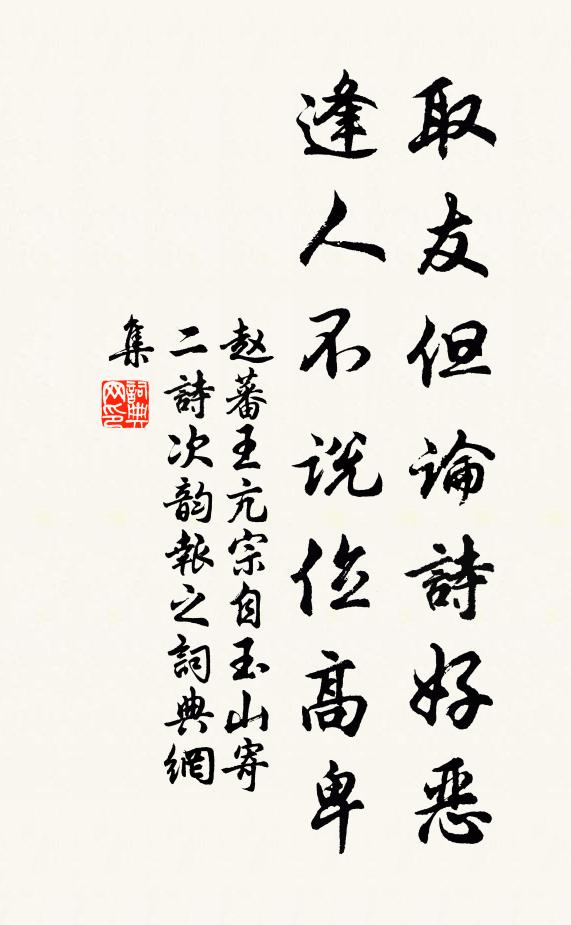 取友但論詩好惡
逢人不説位高卑
赵蕃王亢宗自玉山寄
二詩次韵報之詞典網
集
詞典
网印